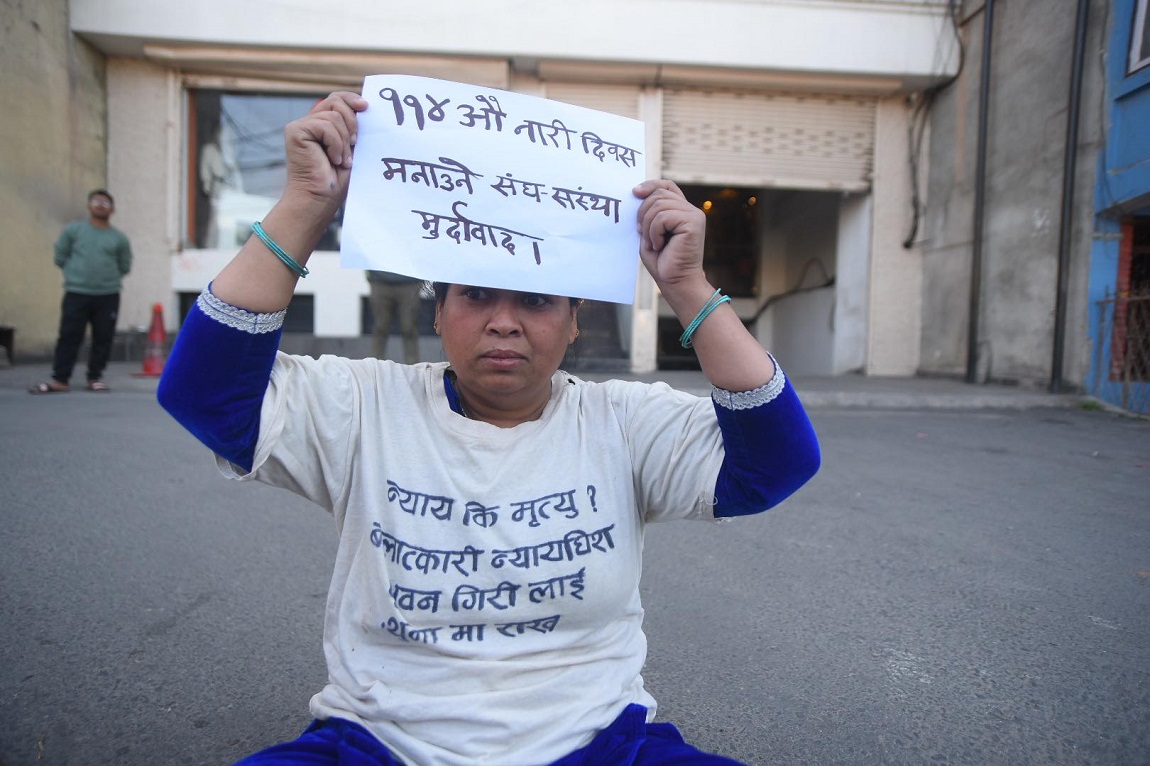 ११४ औ नारी दिवस
मनाउने संघ-संस्था
मुर्दावाद ।
न्याय कि मृत्यु ?
बलात्कारी न्यायाधिश
पवन गिरी लाई
मा राख